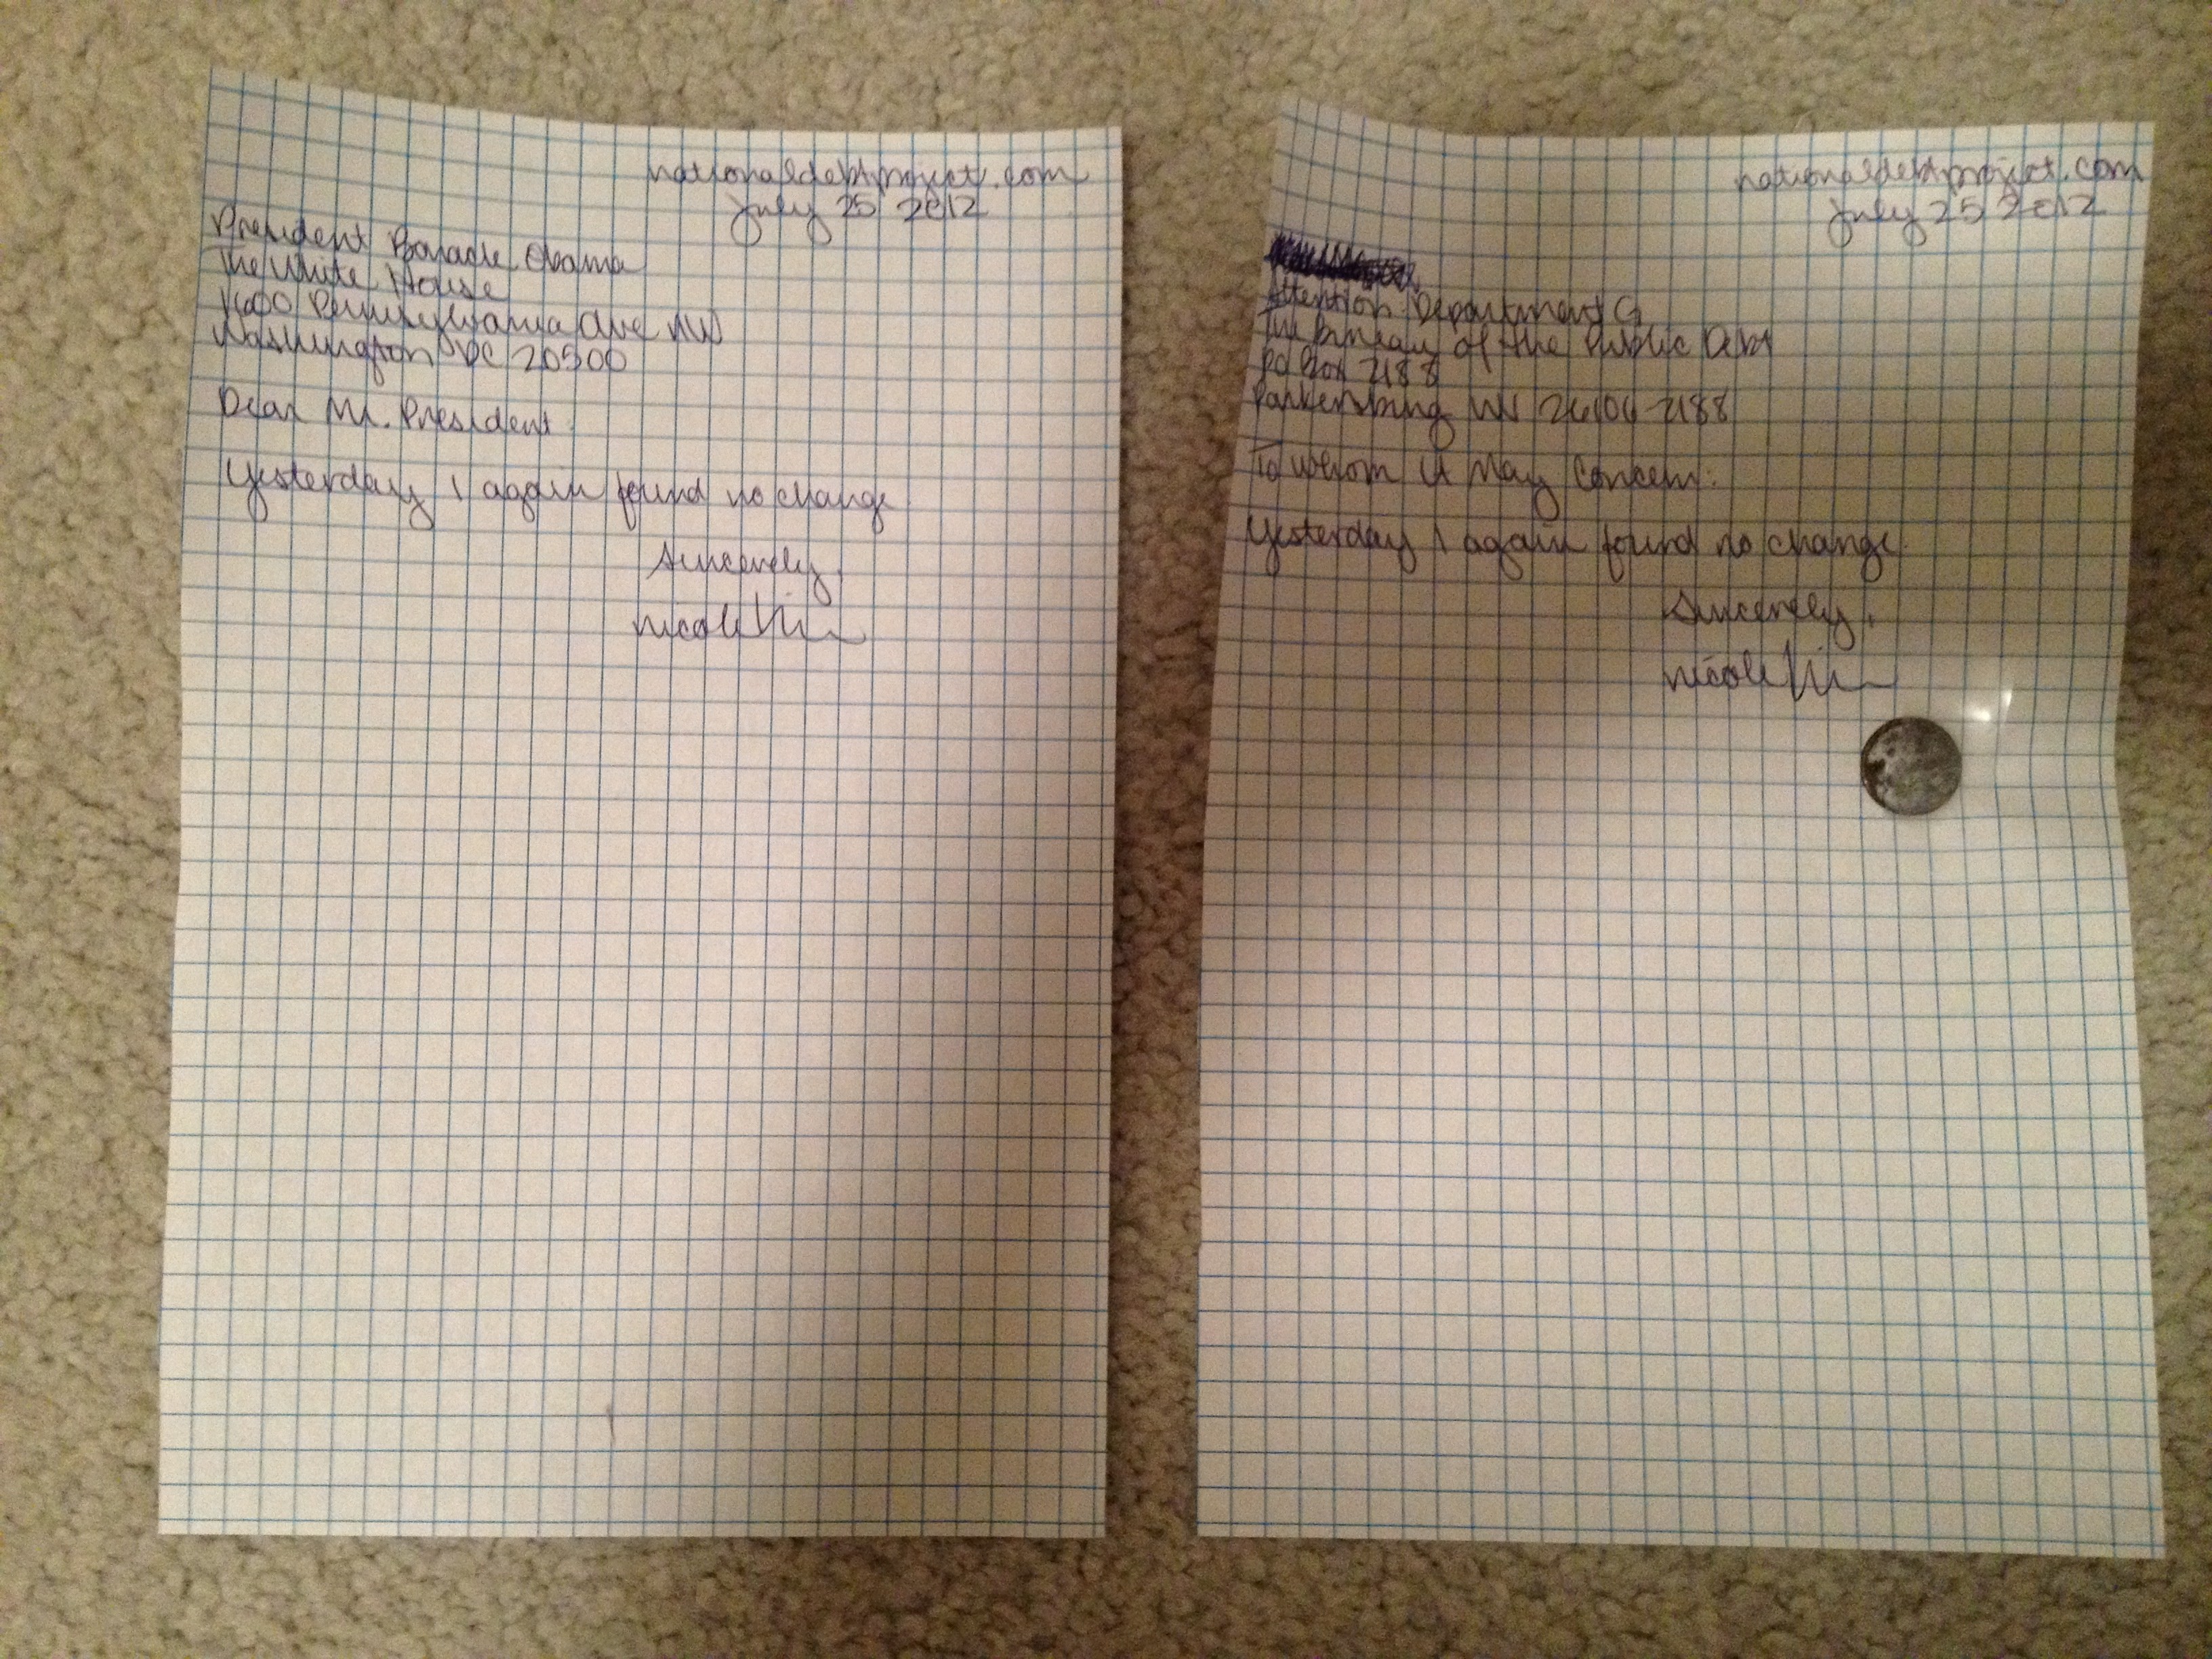 nationaldebtproject.com
July 25 2012
President Barack Obama
The White House
1600 Pennsylvania Ave NW
Washington DC 20500
Dear Mr. President
Yesterday I again found no change.
Sincerely,
nicole
nationaldebtproject.com
July 25 2012
Attention Department G
The Bureau of the Public Debt
PO Box 2188
Parkersburg WV 26106-2188
To Whom it May Concern:
Yesterday I again found no change.
Sincerely,
nicole